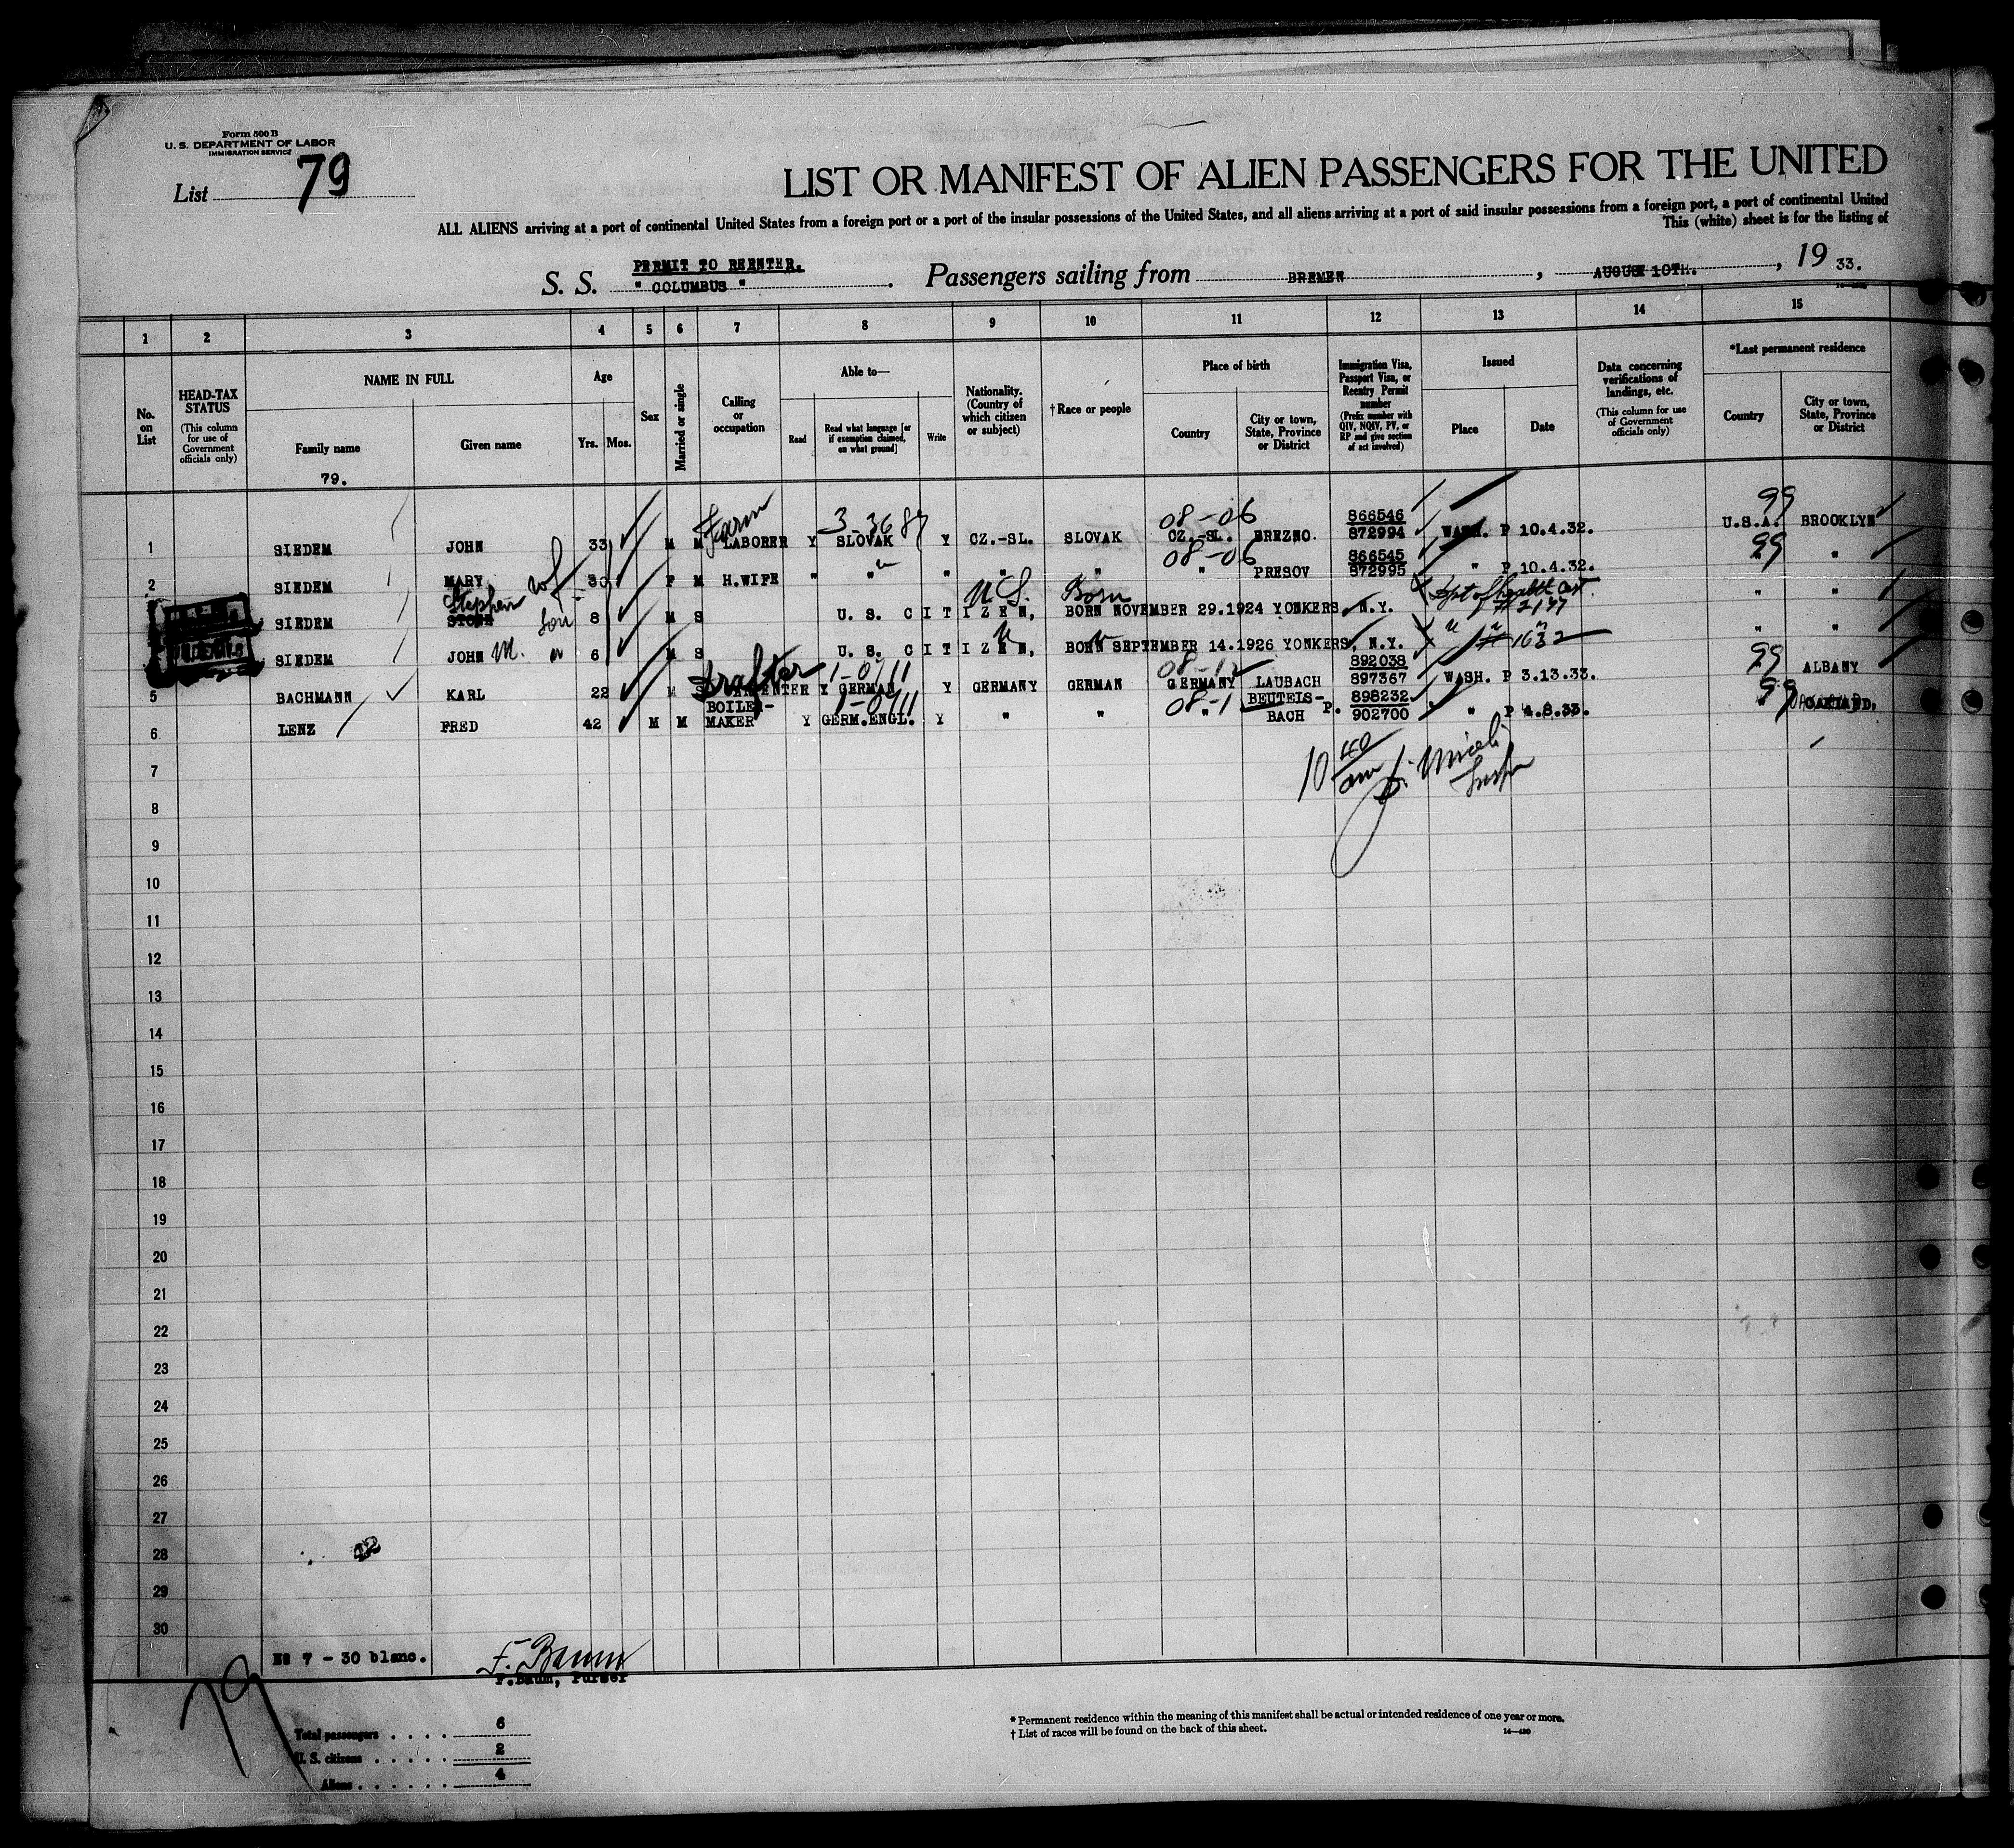 Form 500 B
U. S. DEPARTMENT OF LABOR
IMMIGRATION SERVICE
List 79
LIST OR MANIFEST OF ALIEN PASSENGERS FOR THE UNITED
ALL ALIENS arriving at a port of continental United States from a foreign port or a port of the insular possessions of the United States, and all aliens arriving at a port of said insular possessions from a foreign port, a port of continental United
This (white) sheet is for the listing of
PERMIT TO REENTER.
S. S. " COLUMBUS " . Passengers sailing from BREMEN , AUGUST 10TH. , 19 33.
1 2 3 4 5 6 7 8 9 10 11 12 13 14 15
No. on List
HEAD-TAX STATUS (This column for use of Government officials only)
NAME IN FULL Family name Given name
Age Yrs. Mos.
Sex
Married or single
Calling or occupation
Able to— Read Read what language [or if exemption claimed, on what ground] Write
Nationality. (Country of which citizen or subject)
†Race or people
Place of birth Country City or town, State, Province or District
Immigration Visa, Passport Visa, or Reentry Permit number (Prefix number with QIV, NQIV, PV, or RP and give section of act involved)
Issued Place Date
Data concerning verifications of landings, etc. (This column for use of Government officials only)
*Last permanent residence Country City or town, State, Province or District
79.
Farm 3-3687 08-06 866546 99
1 SIEDEM JOHN 33 M M LABORER Y SLOVAK Y CZ.-SL. SLOVAK CZ.-SL. BREZNO 872994 WASH. P 10.4.32. U.S.A. BROOKLYN
08-06 866545 99
2 SIEDEM MARY wf 30 F M H.WIFE " " " " " " PRESOV 872995 " P 10.4.32. "
Stephen U.S. Born Dpt of health
SIEDEM son 8 M S U. S. CITIZEN, BORN NOVEMBER 29.1924 YONKERS, N.Y. " "
SIEDEM JOHN M. " 6 M S U. S. CITIZEN, BORN SEPTEMBER 14.1926 YONKERS, N.Y. " " # 1632 " "
1-0711 08-12 892038 99
5 BACHMANN KARL 22 M S CARPENTER Y GERMAN Y GERMANY GERMAN GERMANY LAUBACH 897367 WASH. P 3.13.33. ALBANY
BOILER- 1-0711 08-1 BEUTELS- 898232 99
6 LENZ FRED 42 M M MAKER Y GERM.ENGL. Y " " " BACH P. 902700 " P 4.8.33. " OAKLAND.
10 40 am J. Miceli Insp
7
8
9
10
11
12
13
14
15
16
17
18
19
20
21
22
23
24
25
26
27
28
29
30
No 7 - 30 blanc.
F. Baum
F.Baum, Purser
79
Total passengers . . . . 6
U. S. citizens . . . . . 2
Aliens . . . . . . 4
* Permanent residence within the meaning of this manifest shall be actual or intended residence of one year or more.
† List of races will be found on the back of this sheet. 14—430